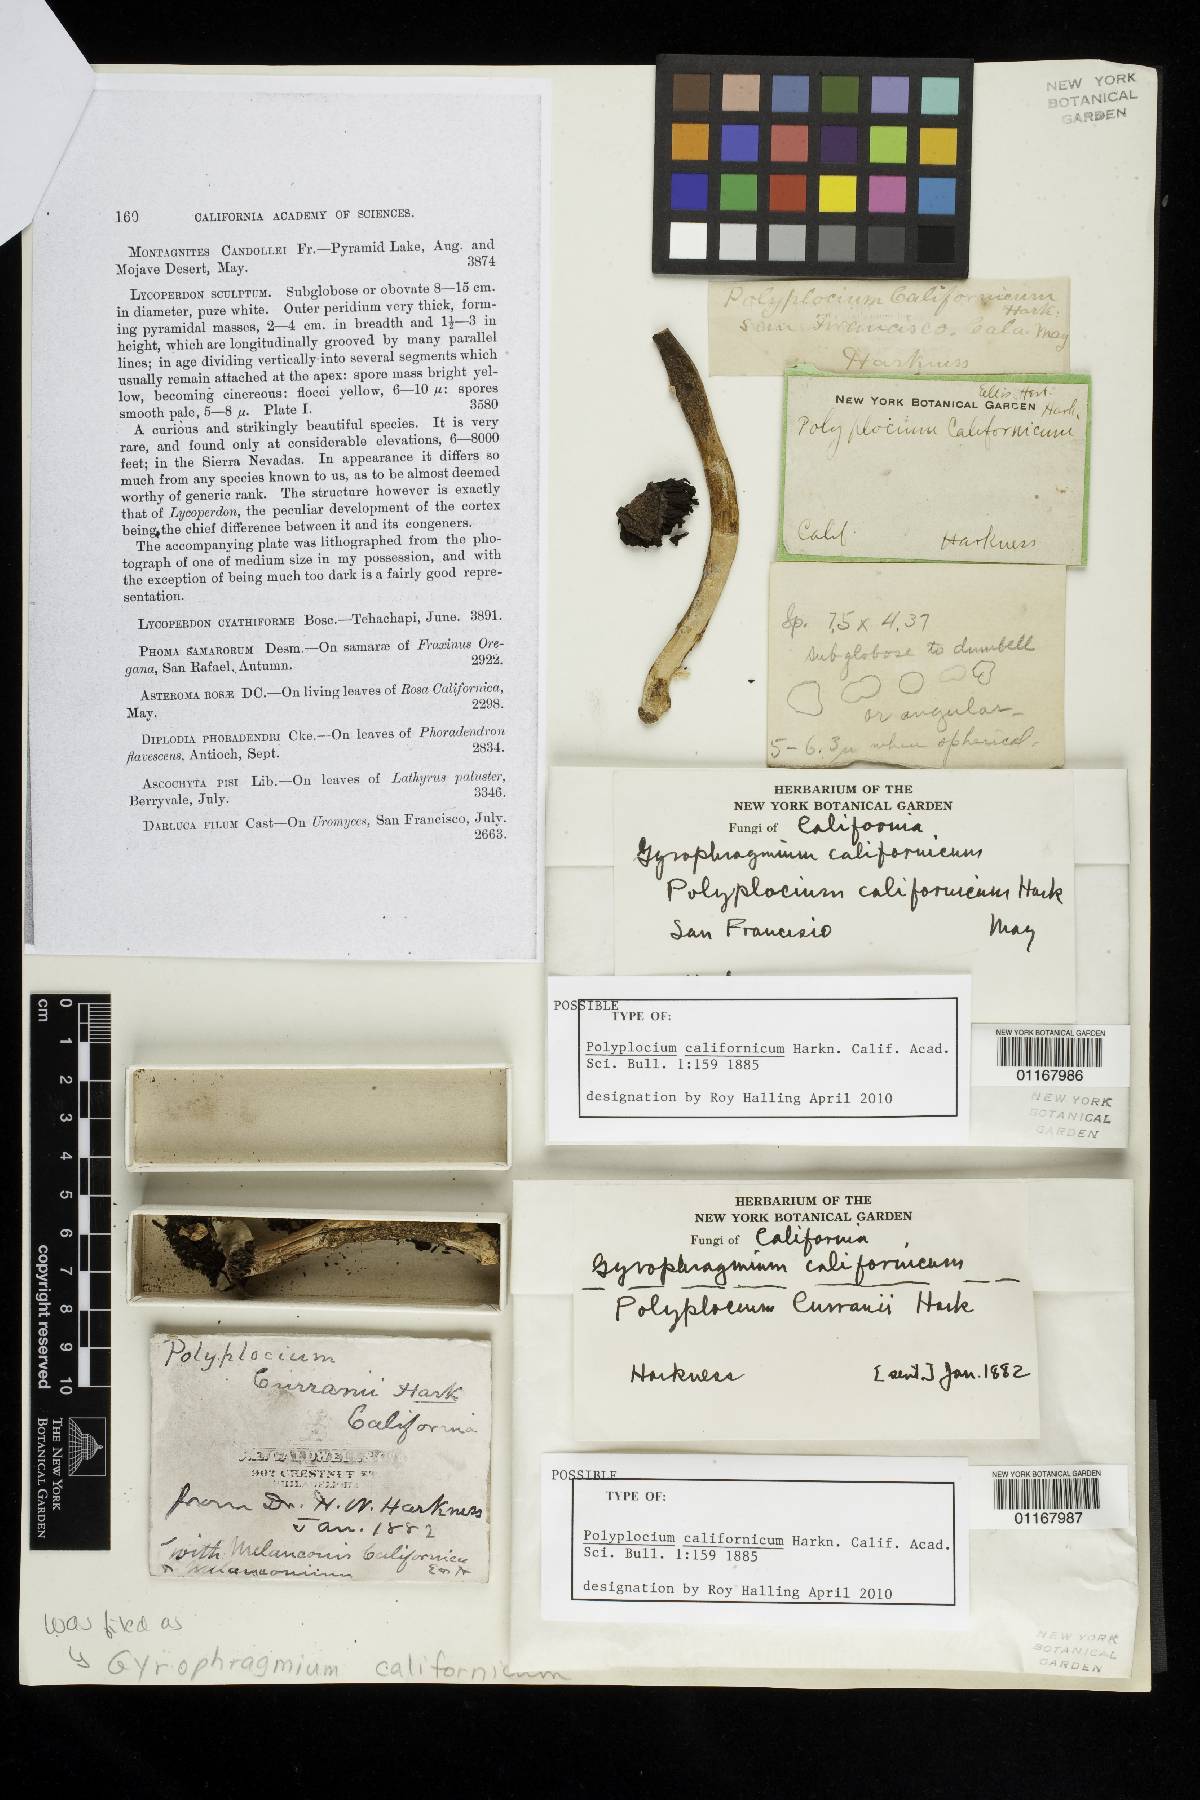 NEW YORK
BOTANICAL
GARDEN
160 CALIFORNIA ACADEMY OF SCIENCES.
MONTAGNITES CANDOLLEI Fr.—Pyramid Lake, Aug. and
Mojave Desert, May. 3874
LYCOPERDON SCULPTUM. Subglobose or obovate 8—15 cm.
in diameter, pure white. Outer peridium very thick, form-
ing pyramidal masses, 2—4 cm. in breadth and 1½—3 in
height, which are longitudinally grooved by many parallel
lines; in age dividing vertically into several segments which
usually remain attached at the apex: spore mass bright yel-
low, becoming cinereous: flocci yellow, 6—10 μ: spores
smooth pale, 5—8 μ. Plate I. 3580
A curious and strikingly beautiful species. It is very
rare, and found only at considerable elevations, 6—8000
feet; in the Sierra Nevadas. In appearance it differs so
much from any species known to us, as to be almost deemed
worthy of generic rank. The structure however is exactly
that of Lycoperdon, the peculiar development of the cortex
being the chief difference between it and its congeners.
The accompanying plate was lithographed from the pho-
tograph of one of medium size in my possession, and with
the exception of being much too dark is a fairly good repre-
sentation.
LYCOPERDON CYATHIFORME Bosc.—Tehachapi, June. 3891.
PHOMA SAMARORUM Desm.—On samaræ of Fraxinus Ore-
gana, San Rafael, Autumn. 2922.
ASTEROMA ROSÆ DC.—On living leaves of Rosa Californica,
May. 2298.
DIPLODIA PHORADENDRI Cke.—On leaves of Phoradendron
flavescens, Antioch, Sept. 2834.
ASCOCHYTA PISI Lib.—On leaves of Lathyrus paluster,
Berryvale, July. 3346.
DARLUCA FILUM Cast—On Uromyces, San Francisco, July.
2663.
Polyplocium Californicum
Hark:
San Francisco. Cala. May
Harkness
Ellis Herb.
NEW YORK BOTANICAL GARDEN Hark.
Polyplocium Californicum
Calif. Harkness
Sp. 7.5 x 4.37
subglobose to dumbell
or angular—
5–6.3μ when spherical.
HERBARIUM OF THE
NEW YORK BOTANICAL GARDEN
Fungi of California
Gyrophragmium californicum
Polyplocium californicum Hark
San Francisco May
POSSIBLE
TYPE OF:
Polyplocium californicum Harkn. Calif. Acad.
Sci. Bull. 1:159 1885
designation by Roy Halling April 2010
NEW YORK BOTANICAL GARDEN
01167986
NEW YORK
BOTANICAL
GARDEN
HERBARIUM OF THE
NEW YORK BOTANICAL GARDEN
Fungi of California
Gyrophragmium californicum
Polyplocium Curranii Hark
Harkness [sent.] Jan. 1882
POSSIBLE
TYPE OF:
Polyplocium californicum Harkn. Calif. Acad.
Sci. Bull. 1:159 1885
designation by Roy Halling April 2010
NEW YORK BOTANICAL GARDEN
01167987
NEW YORK
BOTANICAL
GARDEN
cm
0
1
2
3
4
5
6
7
8
9
10
copyright reserved
THE NEW YORK
BOTANICAL GARDEN
Polyplocium
Curranii Hark
California
902 CHESTNUT ST
PHILADELPHIA
from Dr. H. W. Harkness
Jan. 1882
with Melanconis Californica
& Melanconium E & H
was filed as
Gyrophragmium californicum